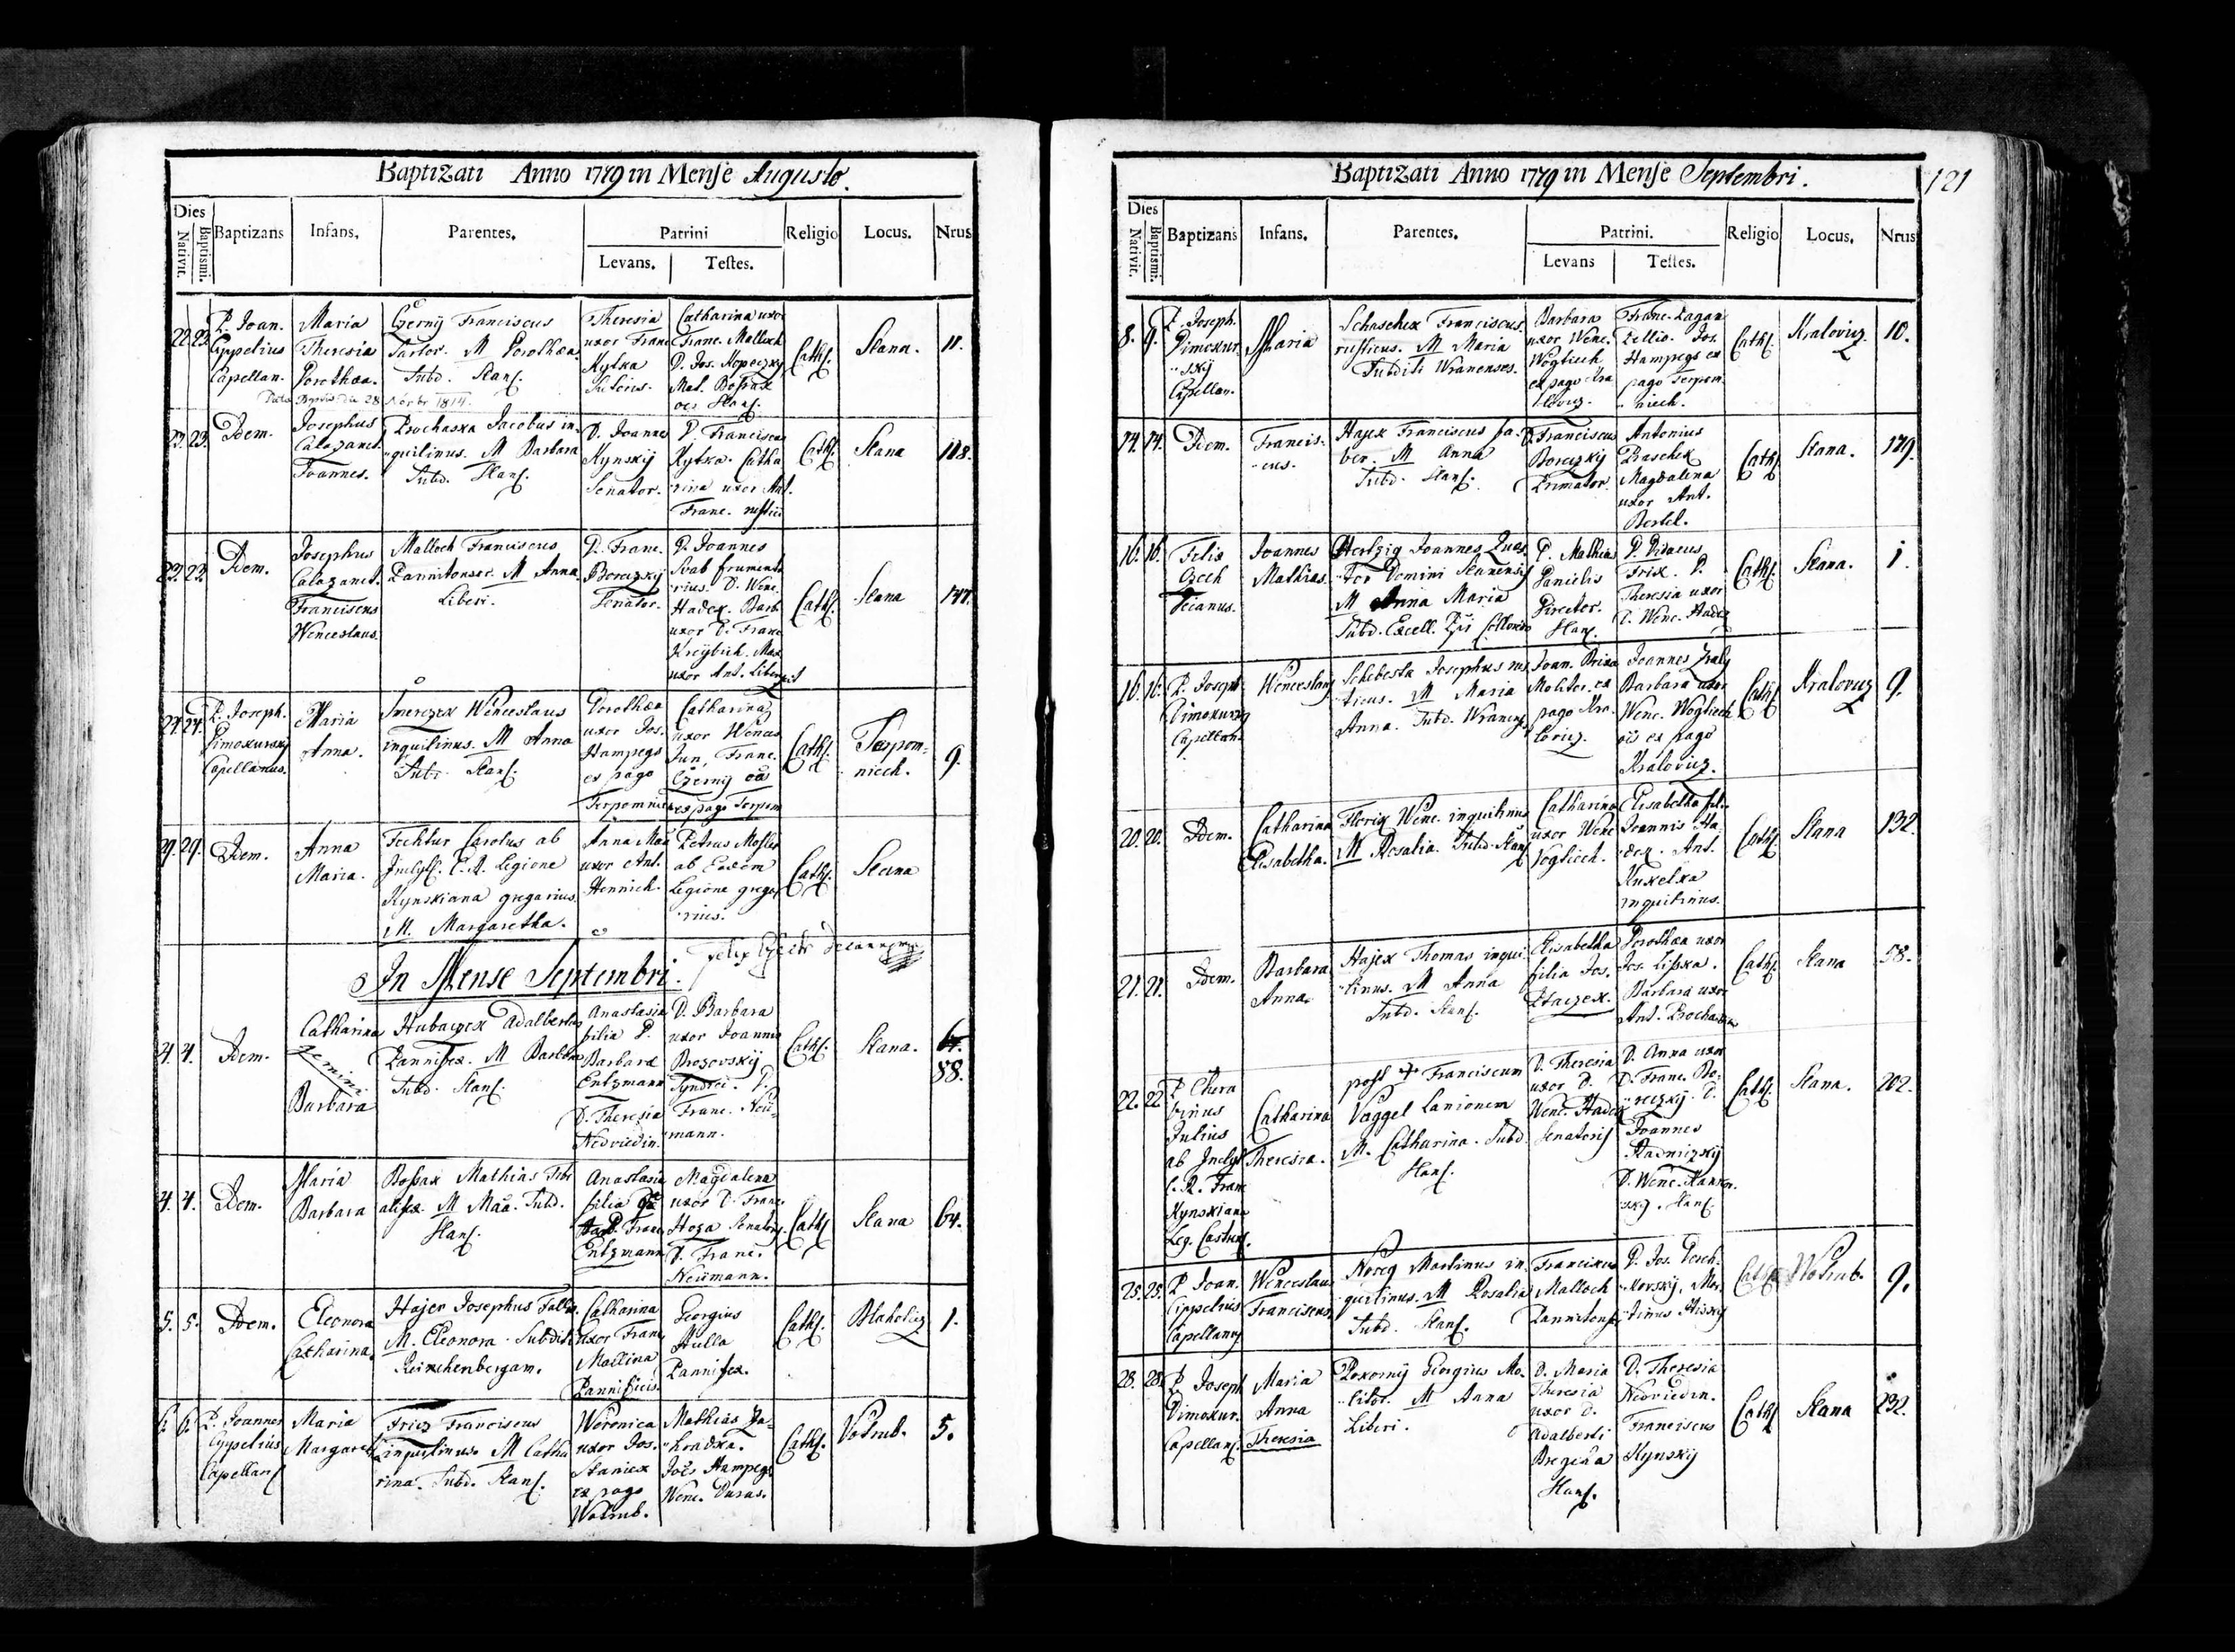 Baptizati Anno 1779 in Mense Augusto.
Dies
Nativit. Baptismi. Baptizans Infans, Parentes, Patrini Religio Locus. Nrus
Levans, Testes.
22 23 P. Joan. Cyppelius Capellan.
Maria Theresia Dorothea.
Czerny Franciscus
Sartor. M Dorothea
Subd. Slan.
Theresia
uxor Franc
Kytka
Sutoris.
Catharina uxor
Franc. Malloch
D. Jos. Kopeczky
Mat. Bossak
Cath. Slana. 11.
23. 23. Idem.
Josephus
Calazanct.
Joannes.
Prochaska Jacobus in-
quilinus. M Barbara
Subd. Slan.
D. Joannes
Kynskij
Senator.
D. Franciscus
Kytka. Catha
rina uxor Ant.
Franc.
Cath. Slana 118.
23. 23. Idem.
Josephus
Calazanct.
Franciscus
Wenceslaus.
Malloch Franciscus
Pannitonsor. M Anna
Liberi.
D. Franc.
Boreczkij
Senator.
D. Joannes
Svab frumenta
rius. D. Wenc.
Hadek. Barb.
uxor D. Franc
Kreybich.
uxor Ant.
Cath. Slana
24. 24. P. Joseph.
Dimokurskij
Capellanus.
Maria
Anna.
Smerczek Wenceslaus
inquilinus. M Anna
Subd. Slan.
Dorothea
uxor Jos.
Hampegs
ex pago
Catharina
uxor Wences
Jun, Franc.
Czerny
ex pago Terpom
Cath. Terpom-
niech. 9.
29. 29. Idem.
Anna
Maria.
Fechtur Carolus ab
Inclyt. C. R. Legione
Kynskiana gregarius.
M. Margaretha.
Anna
uxor Ant.
Hennich.
Petrus
ab Eadem
Legione grega
rius.
Cath. Slana
In Mense Septembri.
4. 4. Idem.
Catharina
Gemini
Barbara
Hubaczek Adalbertus
Pannifex. M Barbara
Subd. Slan.
Anastasia
filia D.
Barbara
Entzmann
D. Theresia
D. Barbara
uxor Joannis
Brozovskij
Syndici. D.
Franc. Neü-
mann.
Cath. Slana. 88.
4. 4. Idem.
Maria
Barbara
Bossak Mathias Tibi
alifex. M Maa. Subd.
Slan.
Anastasia
filia
D. Franc
Entzmann
Magdalena
uxor D. Franc.
Hoza Senatoris.
D. Franc.
Neümann.
Cath. Slana 64.
5. 5. Idem.
Eleonora
Catharina.
Hajer Josephus
M. Eleonora. Subditi
Catharina
uxor Franc.
Mallina
Pannificis.
Georgius
Hulla
Pannifex.
Cath. 1.
6. 6. P. Joannes
Cyppelius
Capellan
Maria
Margareth
Fricz Franciscus
inquilinus. M Catha
rina. Subd. Slan.
Weronica
uxor Jos.
Staniek
ex pago
Wotrub.
Mathias Za-
hradka.
Jos. Hampegs
Wenc. Duras.
Cath. Votrub. 5.
Baptizati Anno 1779 in Mense Septembri. 121
Dies
Nativit. Baptismi. Baptizans Infans, Parentes, Patrini. Religio Locus, Nrus
Levans Testes.
8. 9. P. Joseph.
Dimokur-
skij
Capellan.
Maria
Schaschek Franciscus
rusticus. M Maria
Subditi Wranenses.
Barbara
uxor Wenc.
Wogtiech
ex pago Kra
lovicz.
Franc. Pagan
Pellio. Jos.
Hampegs ex
pago Terpom-
niech.
Cath. Kralovicz. 10.
14. 14. Idem.
Francis-
cus.
Hajek Franciscus fa-
ber. M Anna
Subd. Slan.
D. Franciscus
Boreczkij
Primator.
Antonius
Praschek
Magdalena
uxor Ant.
Bertel.
Cath. Slana. 179.
16. 16. Felix
Czech
Decanus.
Joannes
Mathias.
Hertzig Joannes Quaes-
tor Dominii Slanensis
M Anna Maria
Subd. Excell.
D. Mathias
Danielis
Director.
Slan.
D. Didacus
Frix. D.
Theresia uxor
D. Wenc. Hadek
Cath. Slana. 1.
16. 16. P. Joseph
Dimokursky
Capellan.
Wenceslaus
Schebesta Josephus rus
ticus. M Maria
Anna. Subd. Wranens.
Joan. Brixa
Molitor. ex
pago Kra-
lovicz.
Joannes
Barbara uxor
Wenc. Wogtiech
ex pago
Kralovicz.
Cath. Kralovicz 9.
20. 20. Idem.
Catharina
Elisabetha.
Florix Wenc. inquilinus
M Rosalia. Subd. Slan
Catharina
uxor Wenc
Vogtiech.
Elisabetha fil.
Joannis Ha-
dek. Ant.
Kukelka
inquilinus.
Cath. Slana 132.
21. 21. Idem.
Barbara
Anna.
Hajek Thomas inqui
linus. M Anna
Subd. Slan.
Elisabetha
filia Jos.
Ptaczek.
Dorothea uxor
Jos. Lisska.
Barbara uxor
Ant. Prochaska
Cath. Slana 58.
22. 22. P. Cheru
binus
Julius
ab Inclyt
C. R. Franc
Kynskiana
Leg. Castren.
Catharina
Theresia.
post + Franciscum
Vaggel Lanionem
M. Catharina. Subd.
Slan.
D. Theresia
uxor D.
Wenc. Hadek
Senatoris
D. Anna uxor
D. Franc. Bo-
reczkij. D.
Joannes
D. Wenc.
Slan.
Cath. Slana. 202.
25. 25. P. Joan.
Cyppelius
Capellanus
Wenceslaus
Franciscus.
Martinus in
quilinus. M Rosalia
Subd. Slan.
Franciscus
Malloch
Pannitonsor
D. Jos. Pesch-
kovskij, Mar
tinus
Cath Wotrub. 9.
28. 28. P. Joseph
Dimokur.
Capellan.
Maria
Anna
Theresia
Pokorny Georgius Mo-
litor. M Anna
Liberi.
D. Maria
Theresia
uxor D.
Adalberti
Slan.
D. Theresia
Franciscus
Kynskij
Cath Slana 232.